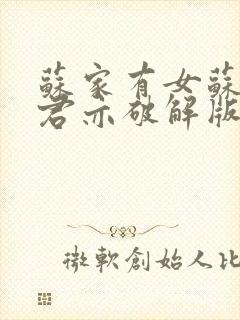 蘇家有女蘇
君亦破解版
微軟創始人比